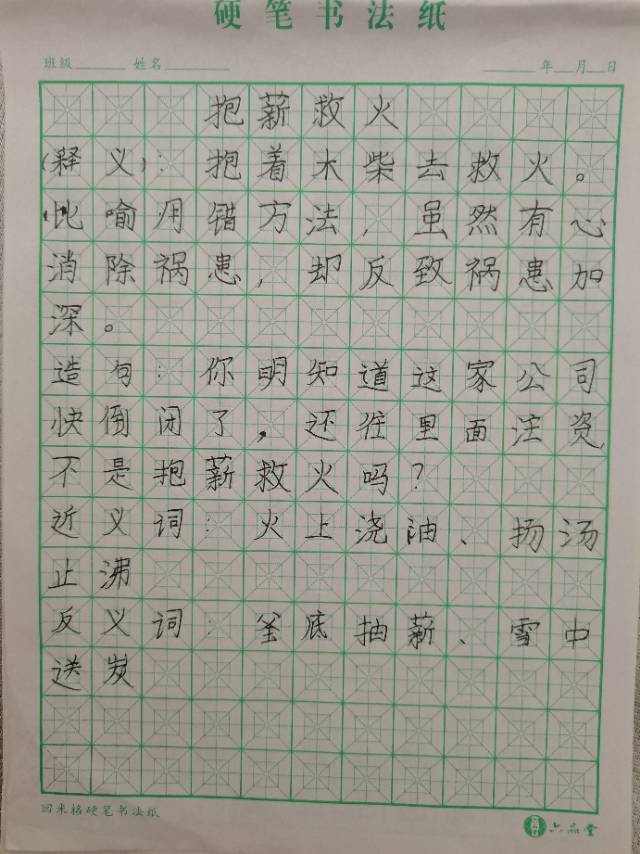 硬笔书法纸
班级 姓名 年 月 日
抱薪救火
(释义):抱着木柴去救火。
比喻用错方法,虽然有心
消除祸患,却反致祸患加
深。
造句:你明知道这家公司
快倒闭了,还往里面注资
不是抱薪救火吗?
近义词:火上浇油、扬汤
止沸
反义词:釜底抽薪、雪中
送炭
回米格硬笔书法纸
六品堂